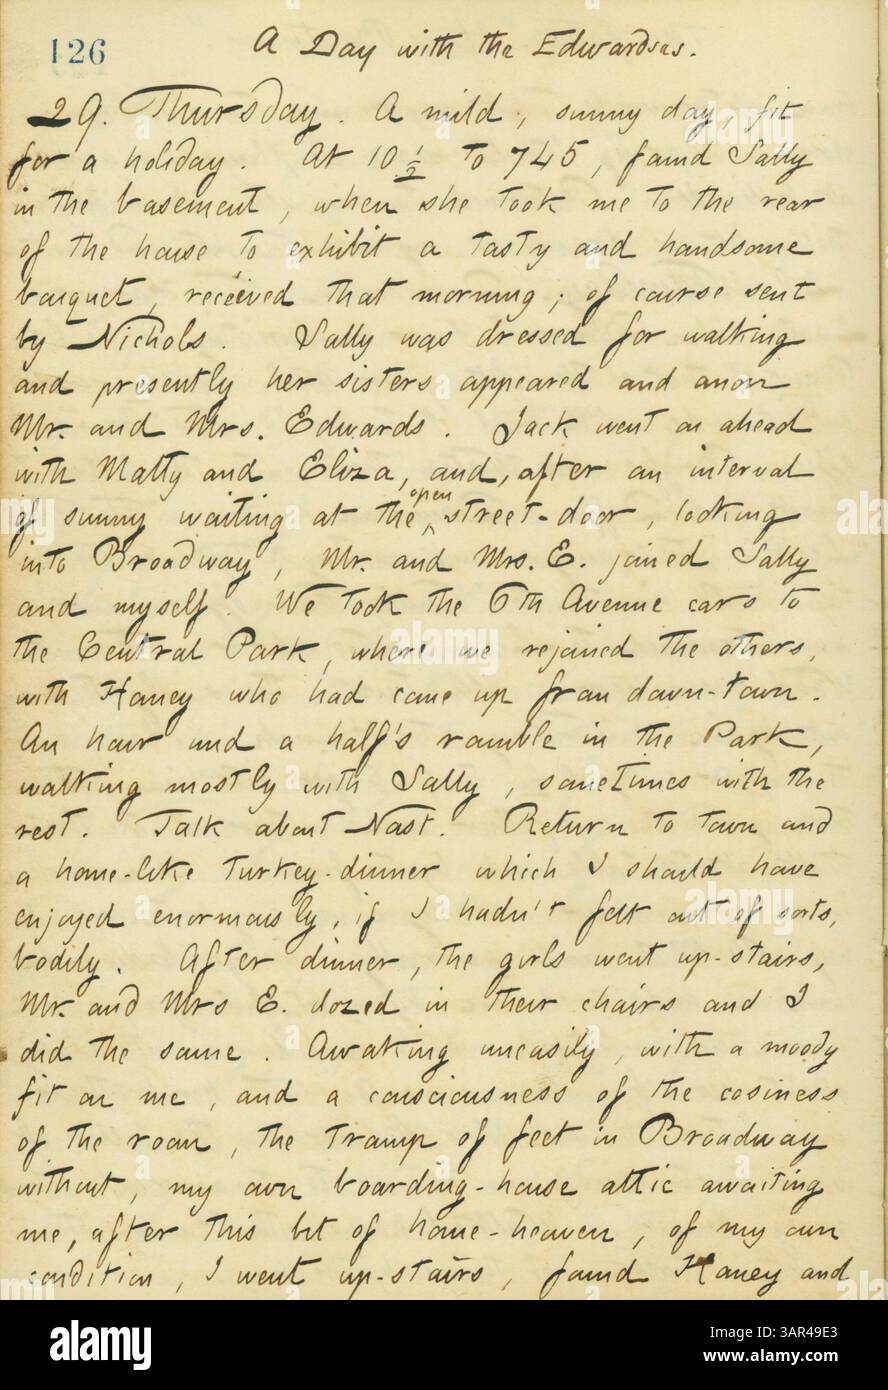 126
A Day with the Edwardses.
29. Thursday. A mild, sunny day, fit
for a holiday. At 10 1/2 to 745, found Sally
in the basement, when she took me to the rear
of the house to exhibit a tasty and handsome
bouquet, received that morning; of course sent
by Nichols. Sally was dressed for walking
and presently her sisters appeared and anon
Mr. and Mrs. Edwards. Jack went on ahead
with Matty and Eliza, and, after an interval
of sunny waiting at the open street-door, looking
into Broadway, Mr. and Mrs. E. joined Sally
and myself. We took the 6th Avenue cars to
the Central Park, where we rejoined the others,
with Haney who had come up from down-town.
An hour and a half's ramble in the Park,
walking mostly with Sally, sometimes with the
rest. Talk about Nast. Return to town and
a home-like turkey-dinner which I should have
enjoyed enormously, if I hadn't felt out of sorts,
bodily. After dinner, the girls went up-stairs,
Mr. and Mrs E. dozed in their chairs and I
did the same. Awaking uneasily, with a moody
fit on me, and a consciousness of the cosiness
of the room, the tramp of feet in Broadway
without, my own boarding-house attic awaiting
me, after this bit of home-heaven, of my own
condition, I went up-stairs, found Haney and
alamy
Image ID: 3AR49E3
www.alamy.com